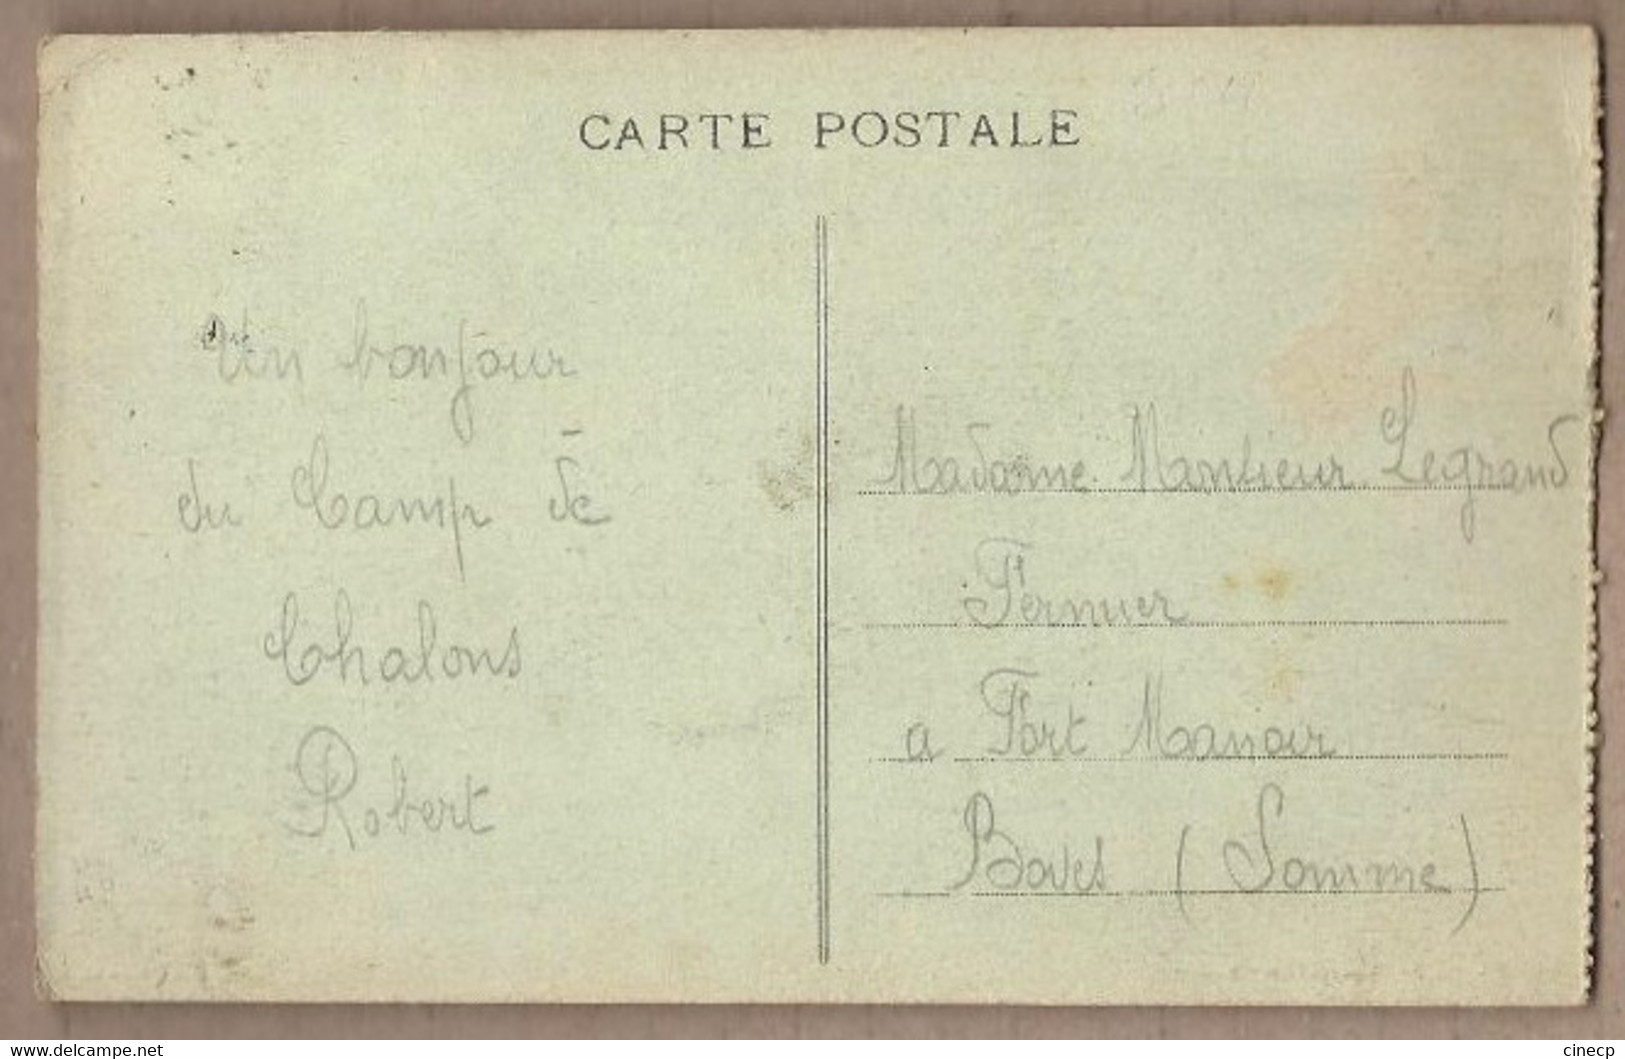 CARTE POSTALE
Un bonjour
du Camp de
Chalons
Robert
Madame Monsieur Legrand
Fermier
a Fort Manoir
Boves (Somme)
www.delcampe.net
cinecp